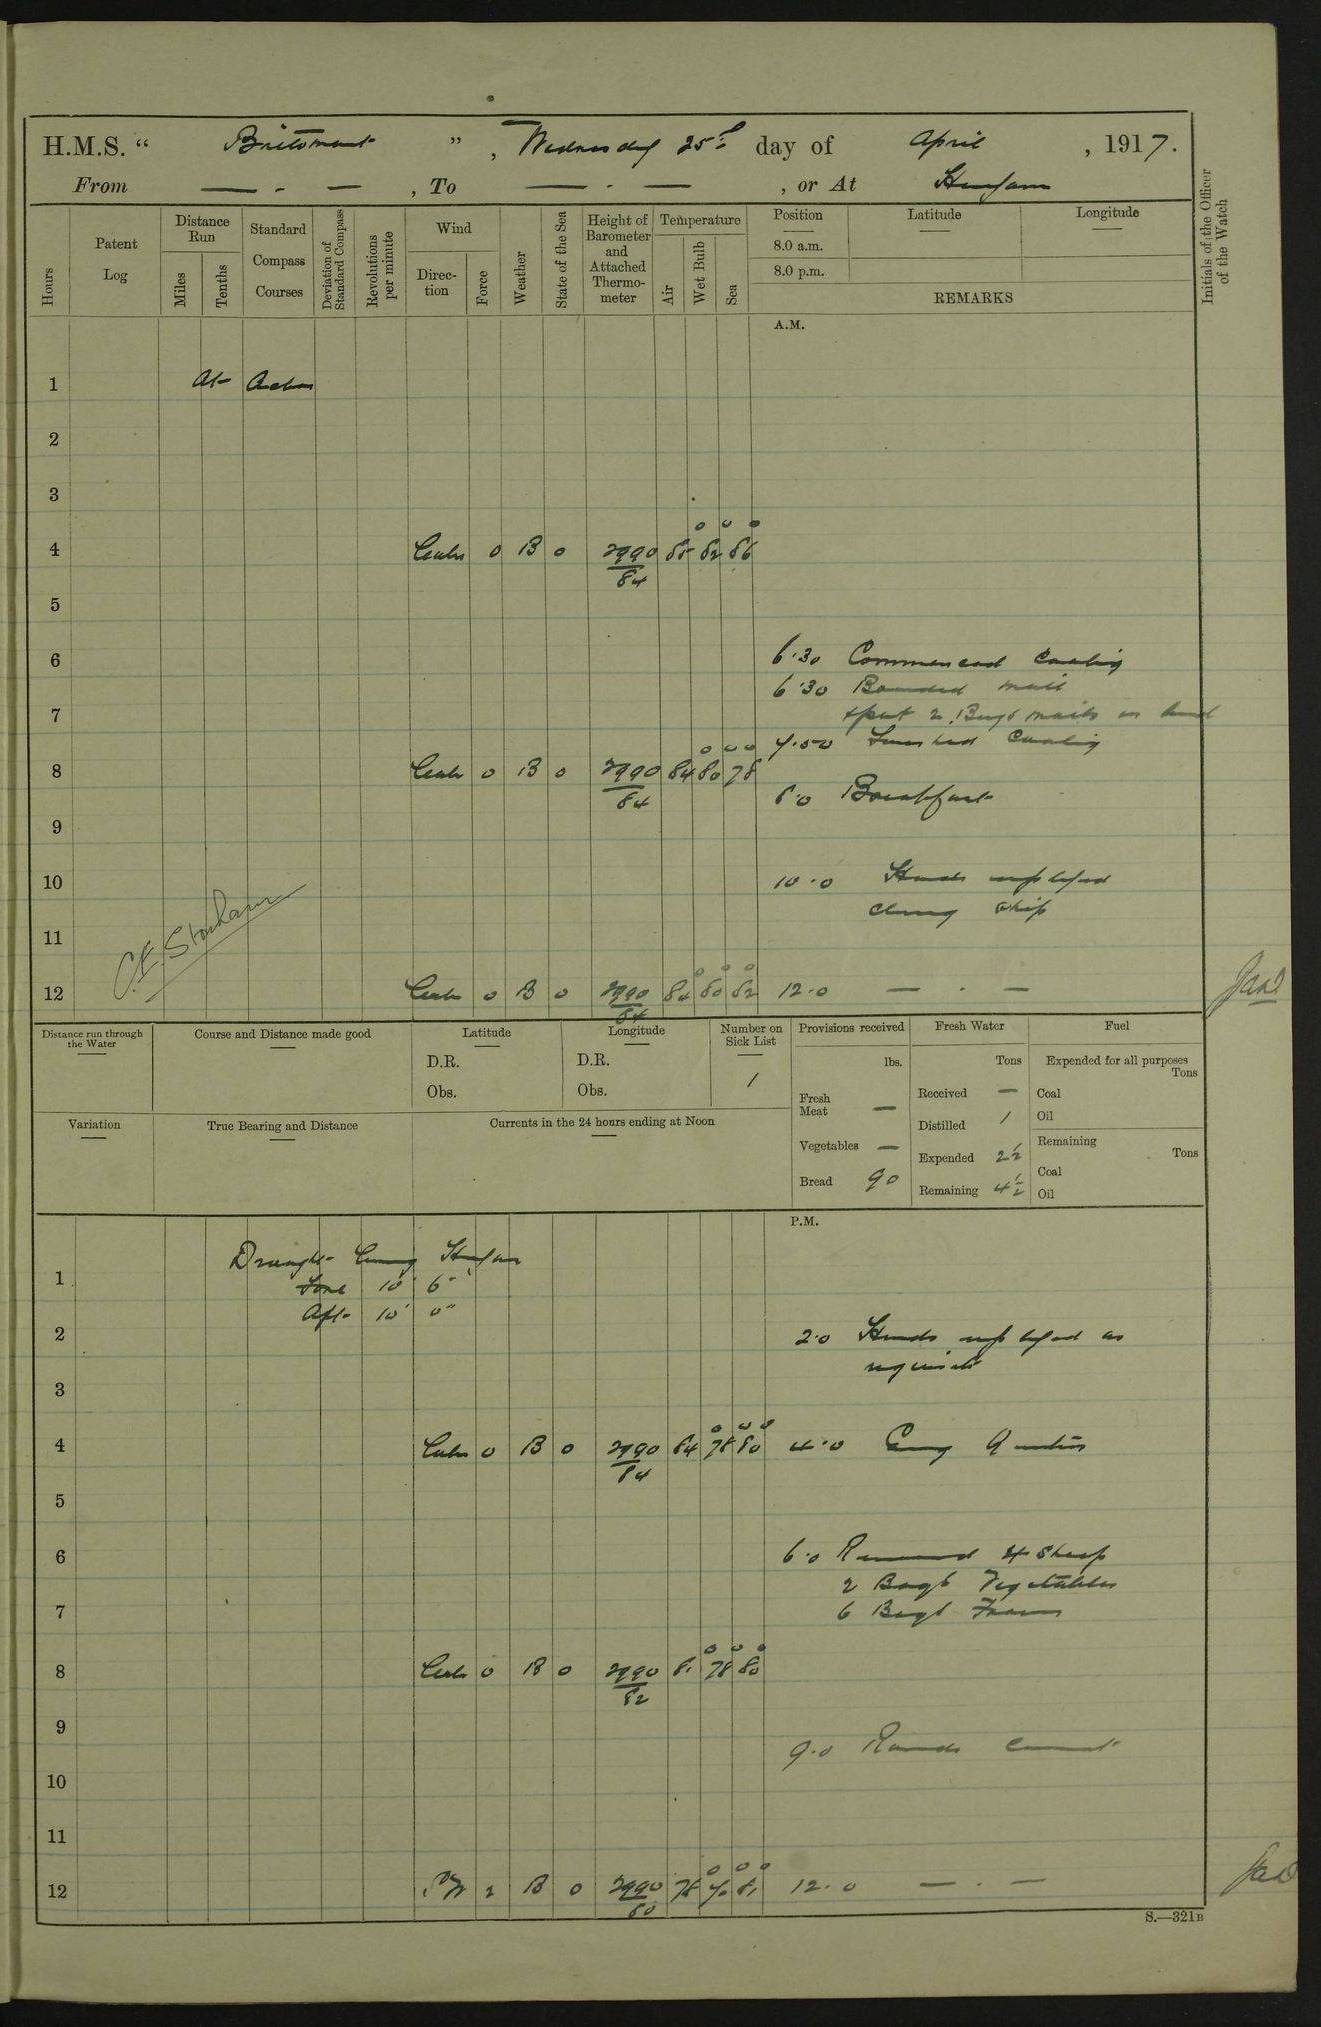 H.M.S. “ Britomart ” , Wednesday 25th day of April , 1917.
From — . — , To — . — , or At Henjam
Hours
Patent Log
Distance Run
Miles
Tenths
Standard Compass Courses
Deviation of Standard Compass
Revolutions per minute
Wind
Direction
Force
Weather
State of the Sea
Height of Barometer and Attached Thermometer
Temperature
Air
Wet Bulb
Sea
Position
8.0 a.m.
8.0 p.m.
Latitude
Longitude
REMARKS
Initials of the Officer of the Watch
A.M.
1 At Anchor
2
3
4 Calm 0 B 0 2990/84 85 82 86
5
6 6.30 Commenced Coaling
6.30 Boarded mail
7 & put 2 Bags mails on
7.50 Finished Coaling
8 Calm 0 B 0 2990/84 84 80 78
8.0 Breakfast
9
10 10.0 Hands employed
cleaning ship
11
C.E. Stonham
12 Calm 0 B 0 2990/84 84 80 82 12.0 — . — JaD
Distance run through the Water
Course and Distance made good
Latitude
D.R.
Obs.
Longitude
D.R.
Obs.
Number on Sick List
1
Provisions received
lbs.
Fresh Meat —
Vegetables —
Bread 90
Fresh Water
Tons
Received —
Distilled 1
Expended 2½
Remaining 4½
Fuel
Expended for all purposes
Tons
Coal
Oil
Remaining
Tons
Coal
Oil
Variation
True Bearing and Distance
Currents in the 24 hours ending at Noon
P.M.
Draught Henjam
1 Fore 10' 6"
Aft 10' 0"
2 2.0 Hands employed as
requisite
3
4 Calm 0 B 0 2990/84 84 78 80 4.0 Evening Quarters
5
6 6.0 Received 4 Sheep
2 Bags Vegetables
7 6 Bags
8 Calm 0 B 0 2990/82 81 78 80
9
9.0 Rounds Correct
10
11
12 SW 2 B 0 2990/80 78 70 81 12.0 — . — JaD
S.—321B